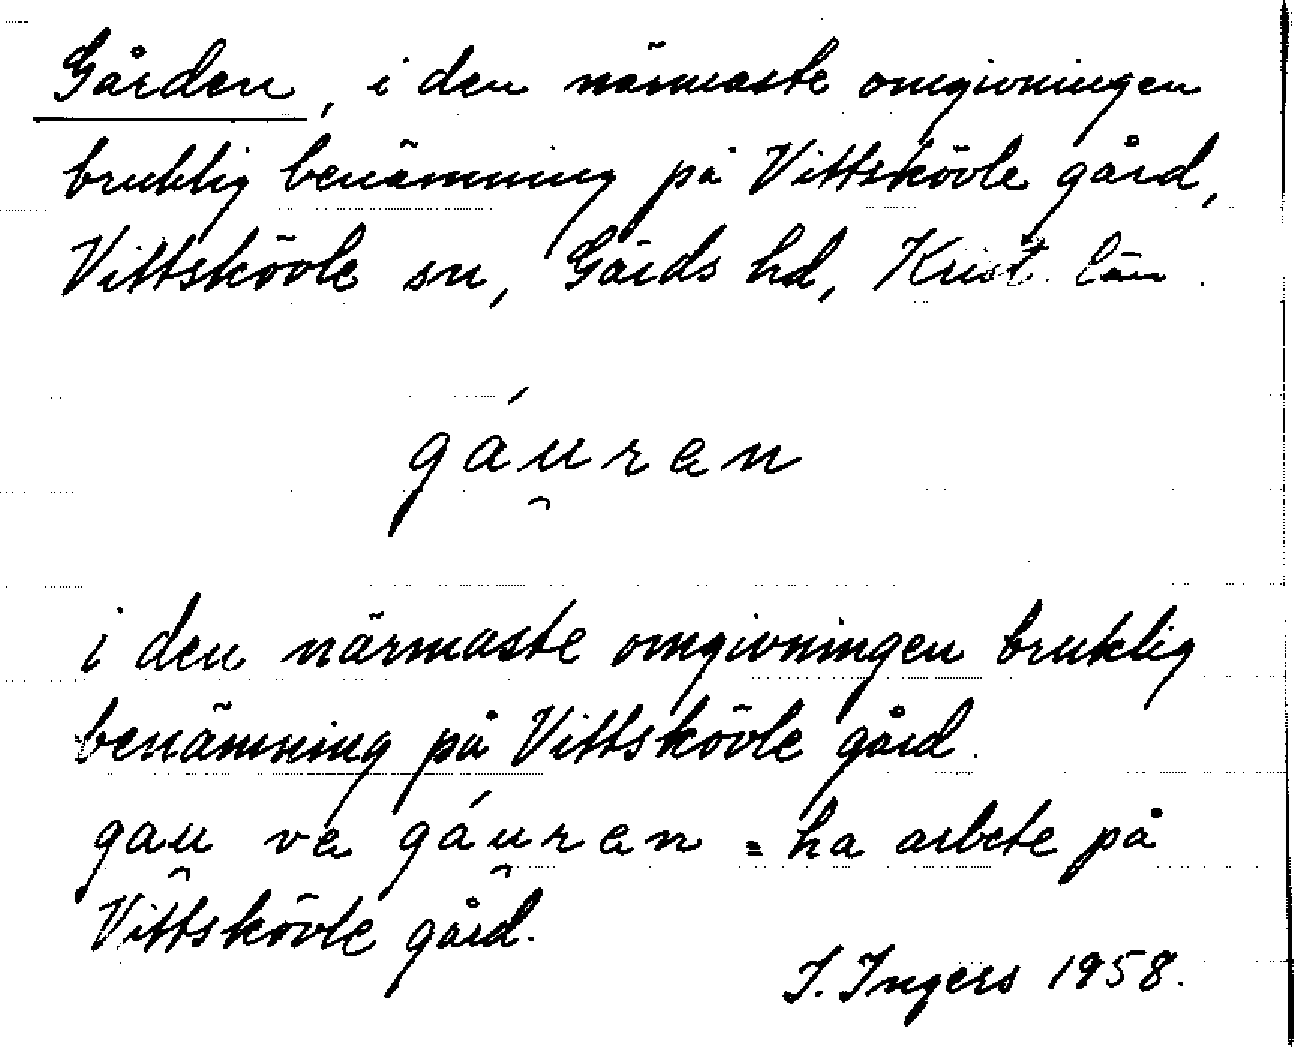 Gården, i den närmaste omgivningen
bruklig benämning på Vittskövle gård,
Vittskövle sn, Gärds hd, Krist. län.
gáu̯ren
i den närmaste omgivningen bruklig
benämning på Vittskövle gård.
gau̯ vɐ gáu̯ren = ha arbete på
Vittskövle gård.
I. Ingers 1958.